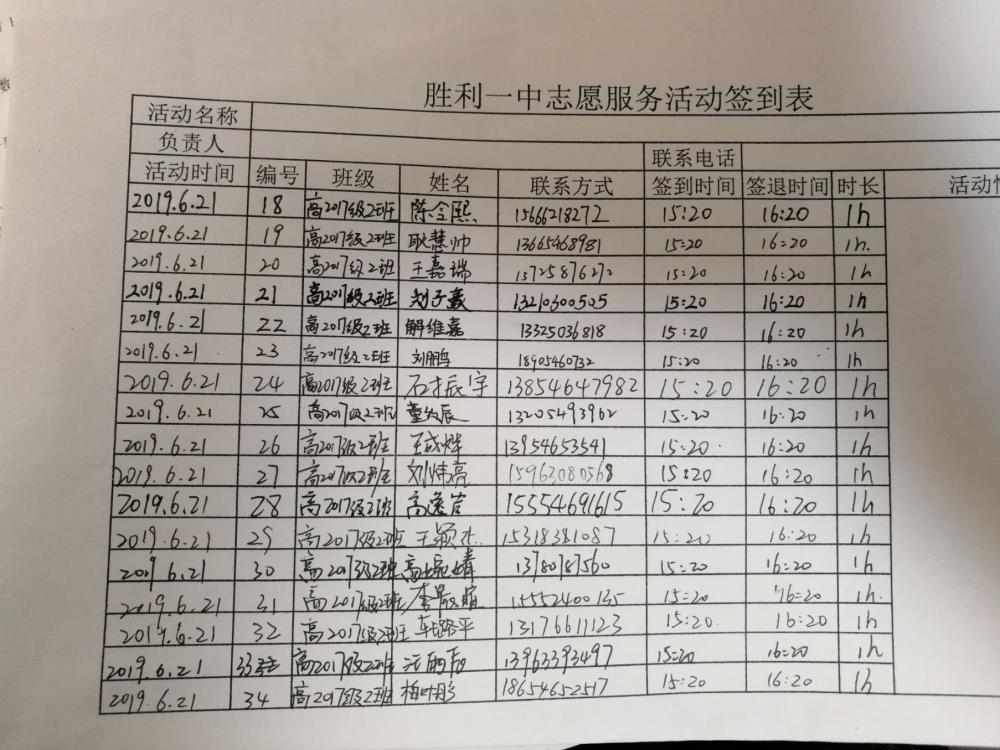 胜利一中志愿服务活动签到表
活动名称
负责人 联系电话
活动时间 编号 班级 姓名 联系方式 签到时间 签退时间 时长 活动
2019.6.21 18 高2017级2班 陈令熙 15666218272 15:20 16:20 1h
2019.6.21 19 高2017级2班 耿慧帅 13665468981 15:20 16:20 1h.
2019.6.21 20 高2017级2班 王嘉瑞 15725876272 15:20 16:20 1h
2019.6.21 21 高2017级2班 刘子 13210300505 15:20 16:20 1h
2019.6.21 22 高2017级2班 解维嘉 13325036818 15:20 16:20 1h
2019.6.21 23 高2017级2班 刘鹏 18905460732 15:20 16:20 1h
2019.6.21 24 高2017级2班 石辰宇 13854647982 15:20 16:20 1h
2019.6.21 25 高2017级2班 董辰 13205493962 15:20 16:20 1h
2019.6.21 26 高2017级2班 王成烨 13954653541 15:20 16:20 1h
2019.6.21 27 高2017级2班 刘炜亮 15963080568 15:20 16:20 1h
2019.6.21 28 高2017级2班 高逸 15554691615 15:20 16:20 1h
2019.6.21 29 高2017级2班 王颖杰 15318381087 15:20 16:20 1h
2019.6.21 30 高2017级2班 高婧 13780187560 15:20 16:20 1h
2019.6.21 31 高2017级2班 李 15552400135 15:20 16:20 1h.
2019.6.21 32 高2017级2班 车路平 13176611123 15:20 16:20 1h
2019.6.21 高2017级2班 13963393497 15:20 16:20 1h
2019.6.21 34 高2017级2班 梅叶彤 18654652517 15:20 16:20 1h